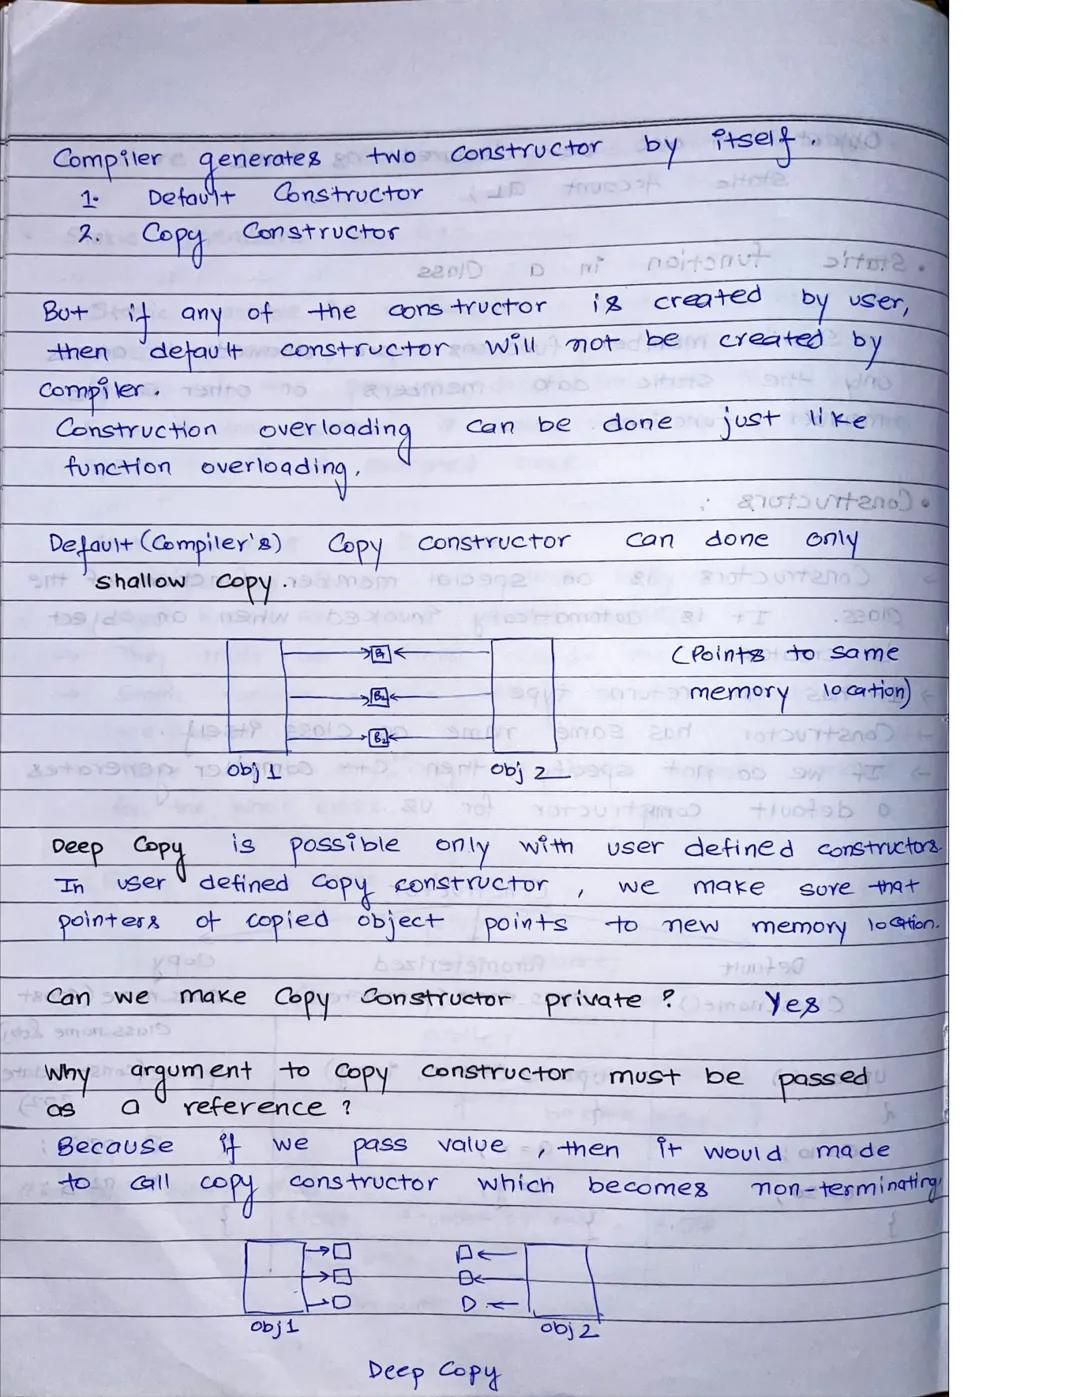 Compiler generates two constructor by itself.
1. Default Constructor
2. Copy Constructor
But if any of the constructor is created by user,
then default constructor will not be created by
compiler.
Construction overloading can be done just like
function overloading.
Default (Compiler's) Copy constructor can done only
shallow copy.
(Points to same
memory location)
obj 1 obj 2
Deep Copy is possible only with user defined constructors.
In user defined copy constructor, we make sure that
pointers of copied object points to new memory location.
Can we make Copy Constructor private ? Yes
Why argument to copy constructor must be passed
as a reference ?
Because if we pass value, then it would made
to call copy constructor which becomes non-terminating
obj 1 obj 2
Deep Copy